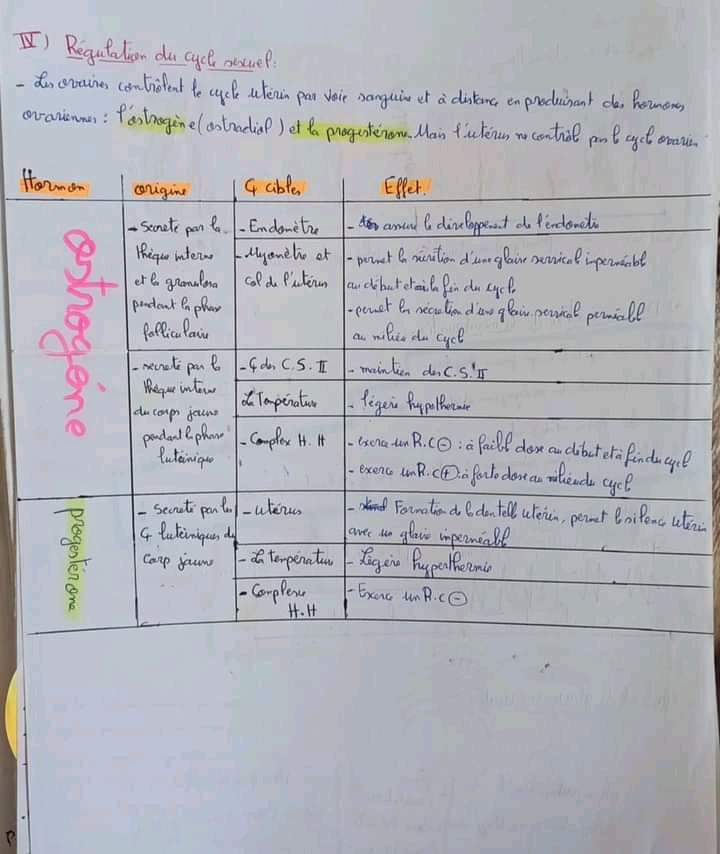 IV) Régulation du cycle sexuel:
- Les ovaires contrôlent le cycle utérin par voie sanguine et à distance en produisant des hormones
ovariennes: l'œstrogène (œstradiol) et la progestérone. Mais l'utérus ne contrôl pas l cycl ovarien
Hormon
origine
ç cibles
Effet.
œstrogène
- Secreté par la
thèque interne
et la granulosa
pendant la phase
folliculaire
- Endomètre
- assure le développement de l'endomètre
- Myomètre et
col de l'utérus
- permet la sécrétion d'une glaire servical imperméabl
au début et à la fin du cycle
- permet la sécrétion d'une glaire servical perméabl
au milieu du cycl
- secreté par la
thèque interne
du corps jaune
pendant la phase
lutéinique
- ç des C.S.II
- maintien des C.S.II
La Température
- légère hypothermie
- Complex H.H
- exerce un R.C⊖: à faibl dose au début et à fin du cycl
- exerce un R.C⊕: à forte dose au milieu du cycl
progestérone
- Secreté par les
ç lutéiniques du
corp jaune
- utérus
- Formation de la dentelle utérin, permet le silence utérin
avec un glaire imperméabl
- La température
- Légère hyperthermie
- Complexe
H.H
- Exerce un R.C⊖